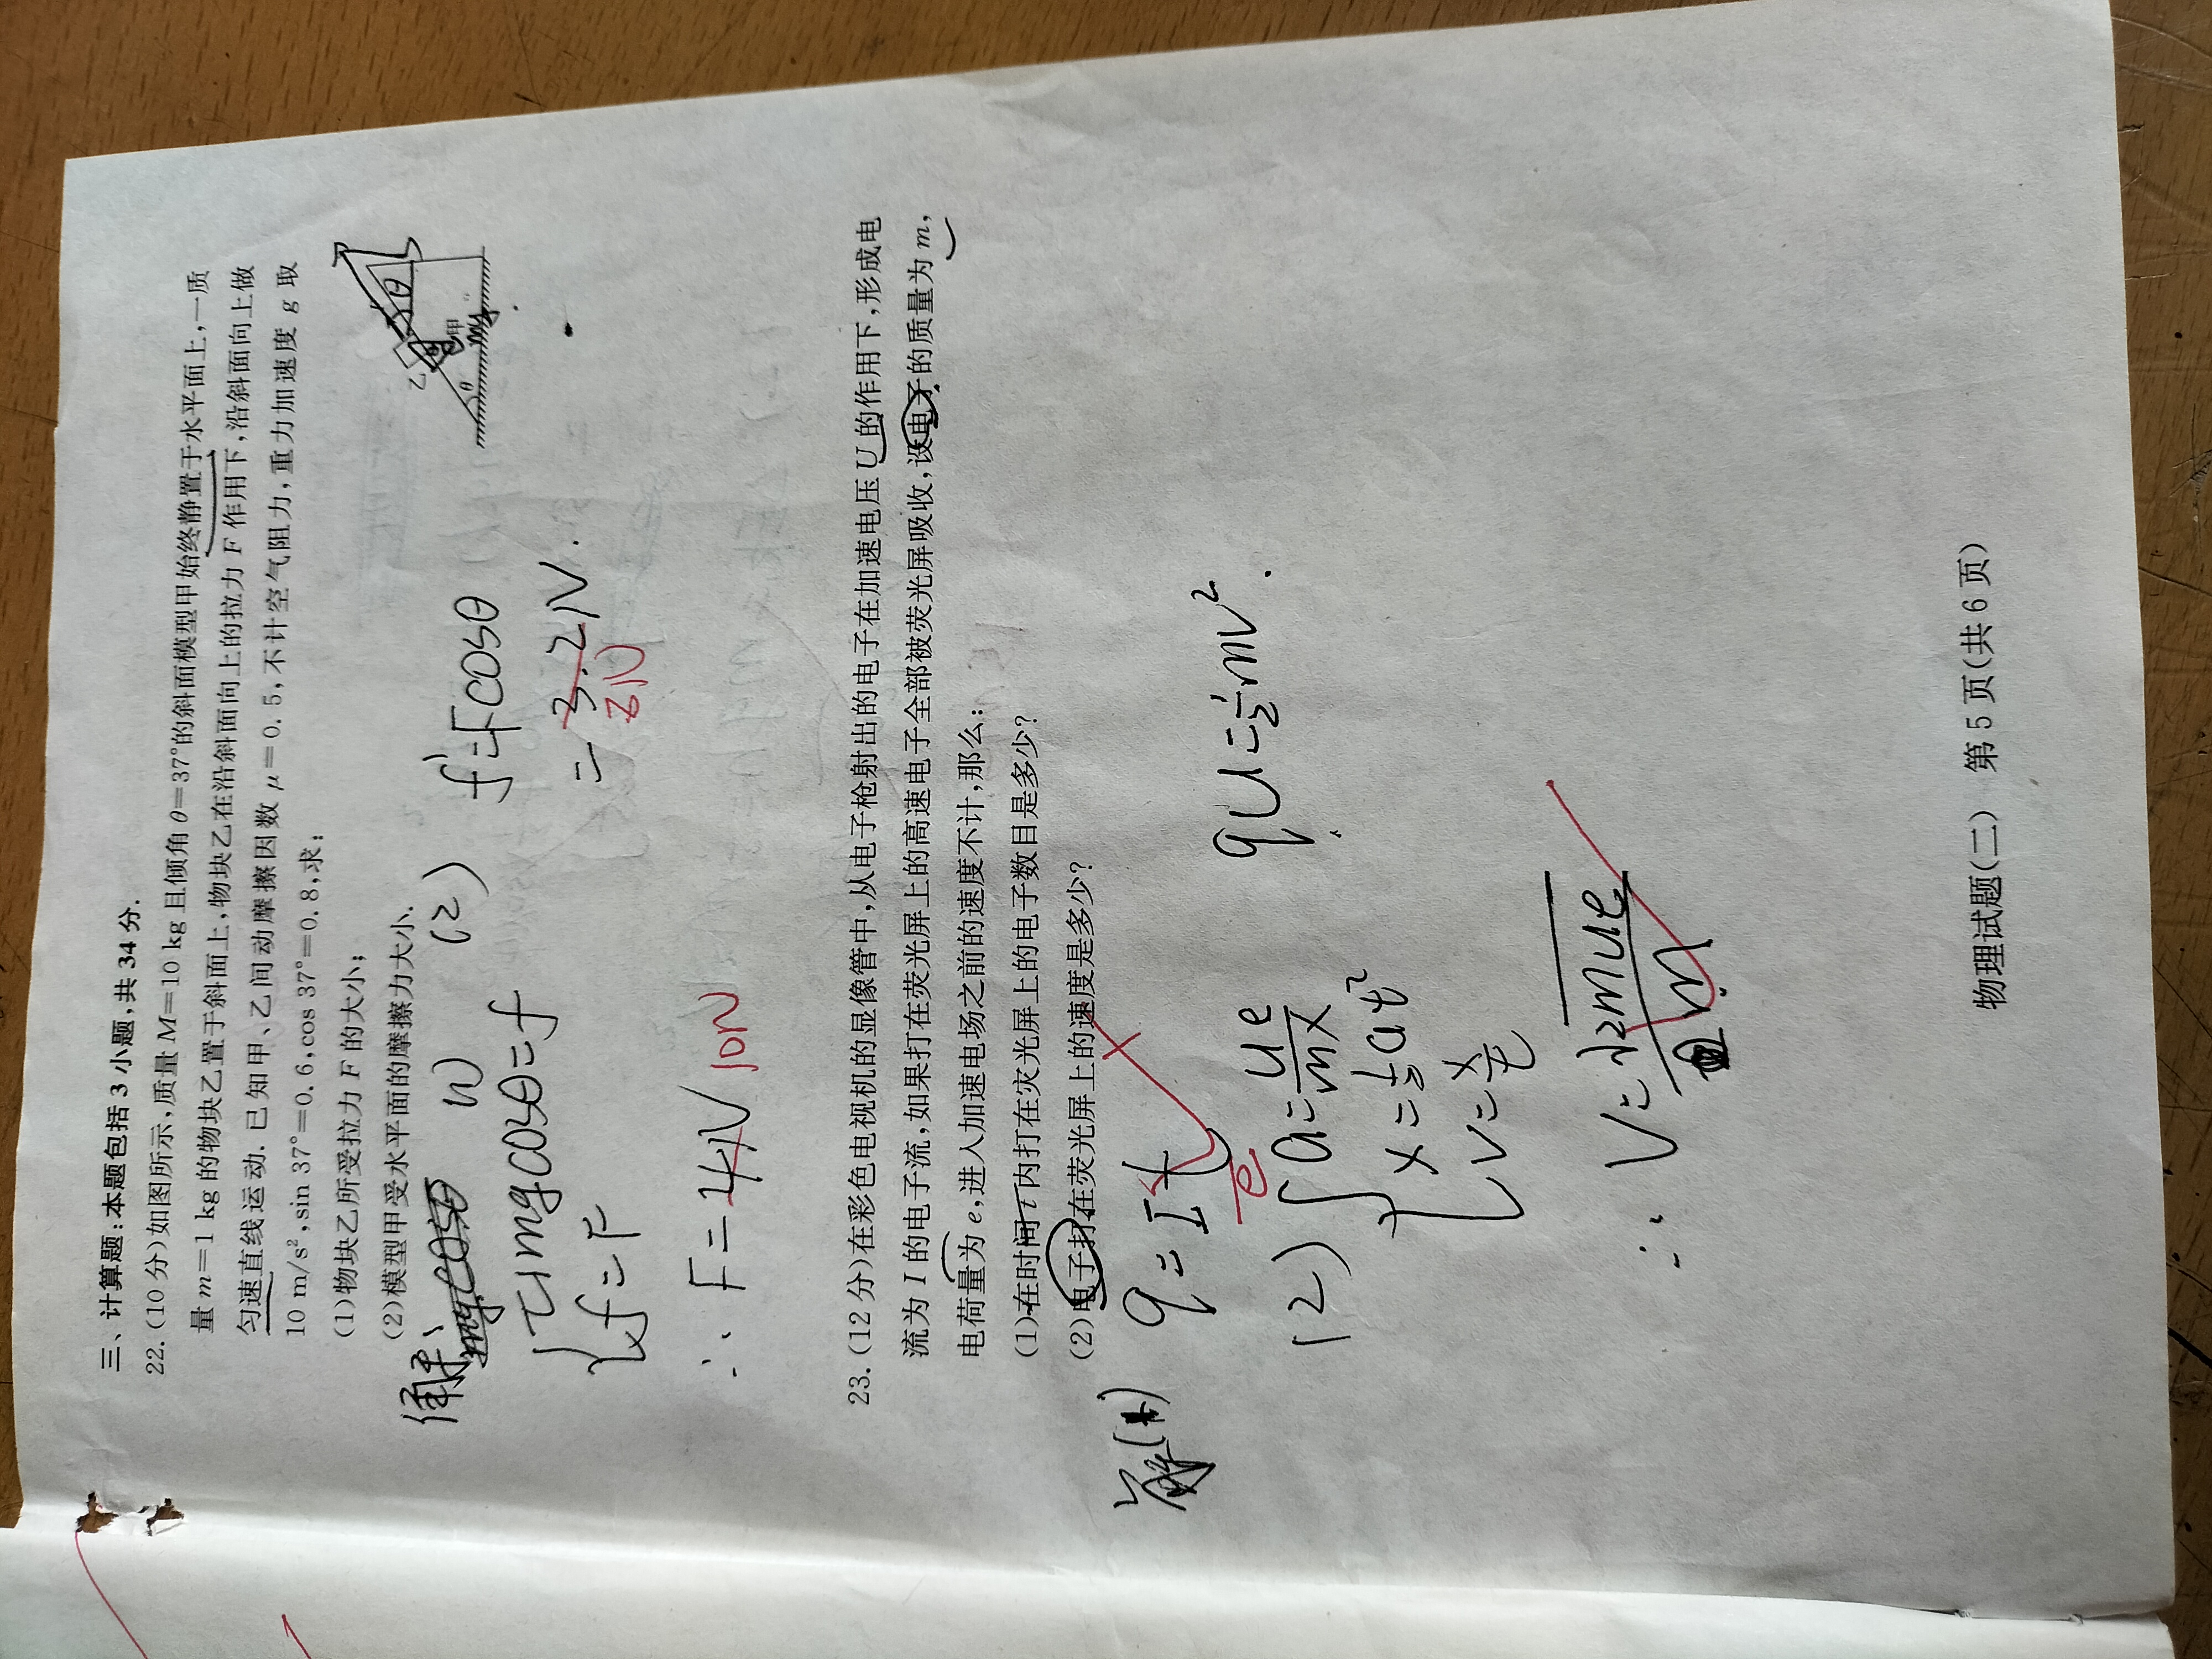 三、计算题:本题包括3小题,共34分.
22.(10分)如图所示,质量M=10 kg且倾角θ=37°的斜面模型甲始终静置于水平面上,一质
量m=1 kg的物块乙置于斜面上,物块乙在沿斜面向上的拉力F作用下,沿斜面向上做
匀速直线运动.已知甲、乙间动摩擦因数μ=0.5,不计空气阻力,重力加速度g取
10 m/s²,sin 37°=0.6,cos 37°=0.8,求:
(1)物块乙所受拉力F的大小;
(2)模型甲受水平面的摩擦力大小.
乙
甲
θ
θ
解:
(1)
umgcosθ=f
f=F
∴ F=4N
10N
(2)
f'=Fcosθ
=3.2N.
8N
23.(12分)在彩色电视机的显像管中,从电子枪射出的电子在加速电压U的作用下,形成电
流为I的电子流,如果打在荧光屏上的高速电子全部被荧光屏吸收,设电子的质量为m,
电荷量为e,进入加速电场之前的速度不计,那么:
(1)在时间t内打在荧光屏上的电子数目是多少?
(2)电子打在荧光屏上的速度是多少?
解(1) q=It
e
(2) a=ue/mx
x=½at²
v=x/t
∴ V=√2mue/m
qU=½mv².
物理试题(二) 第5页(共6页)